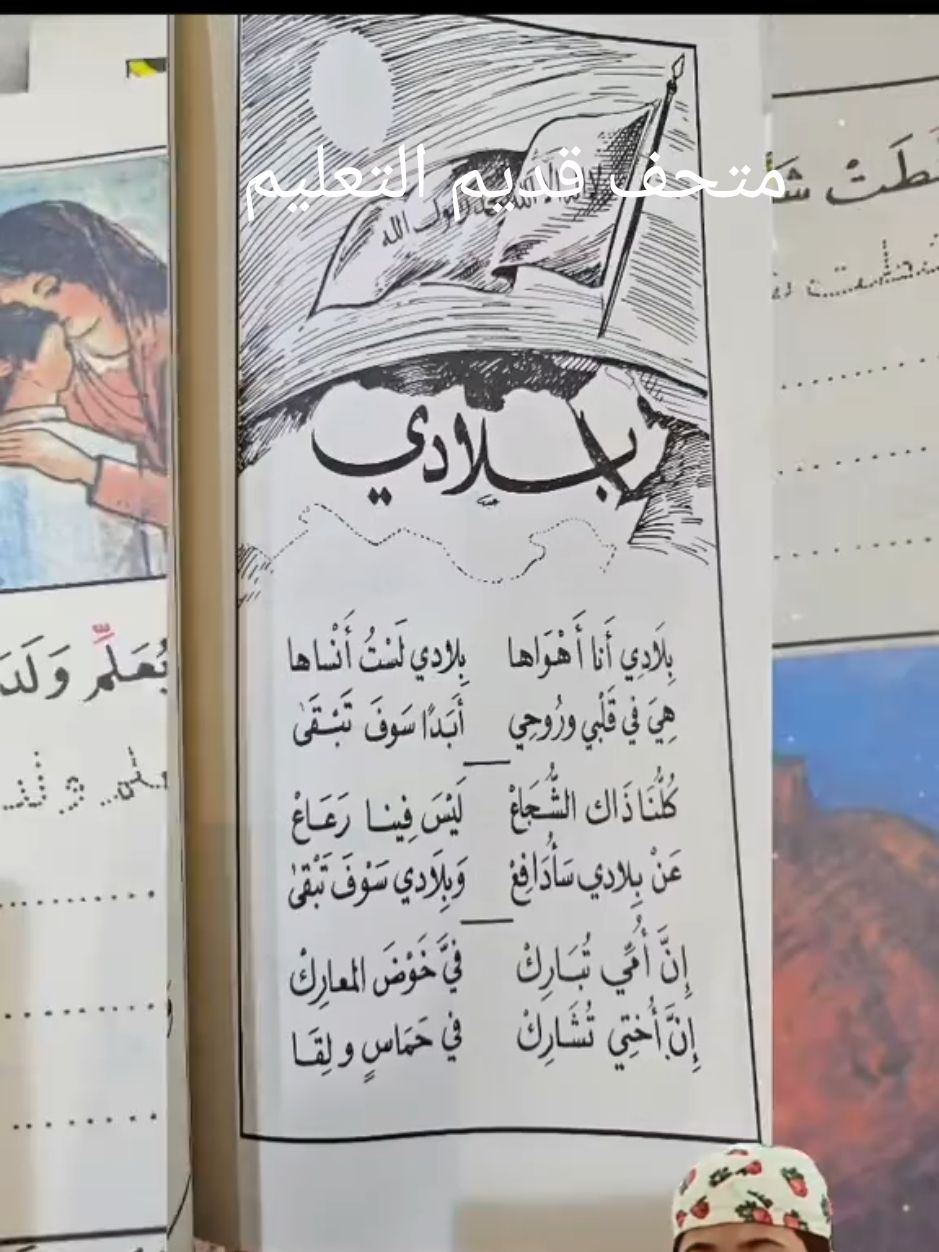 متحف قديم التعليم
محمد رسول الله
بلادي
بِلَادِي أَنا أَهْوَاها بِلادي لَسْتُ أَنْساها
هِيَ في قَلْبي ورُوحِي أَبَدًا سَوفَ تَبْقَىٰ
كُلُّنَا ذَاك الشُّجَاعْ لَيْسَ فِينا رَعَاعْ
عَنْ بِلادي سَأُدَافِعْ وَبِلَادي سَوْفَ تَبْقىٰ
إِنَّ أُمِّي تُبَارِكْ فيَّ خَوْضَ المعارِكْ
إِنَّ أُختِي تُشَارِكْ في حَمَاسٍ و لِقَا
يُعَلِّمُ وَلَدَ